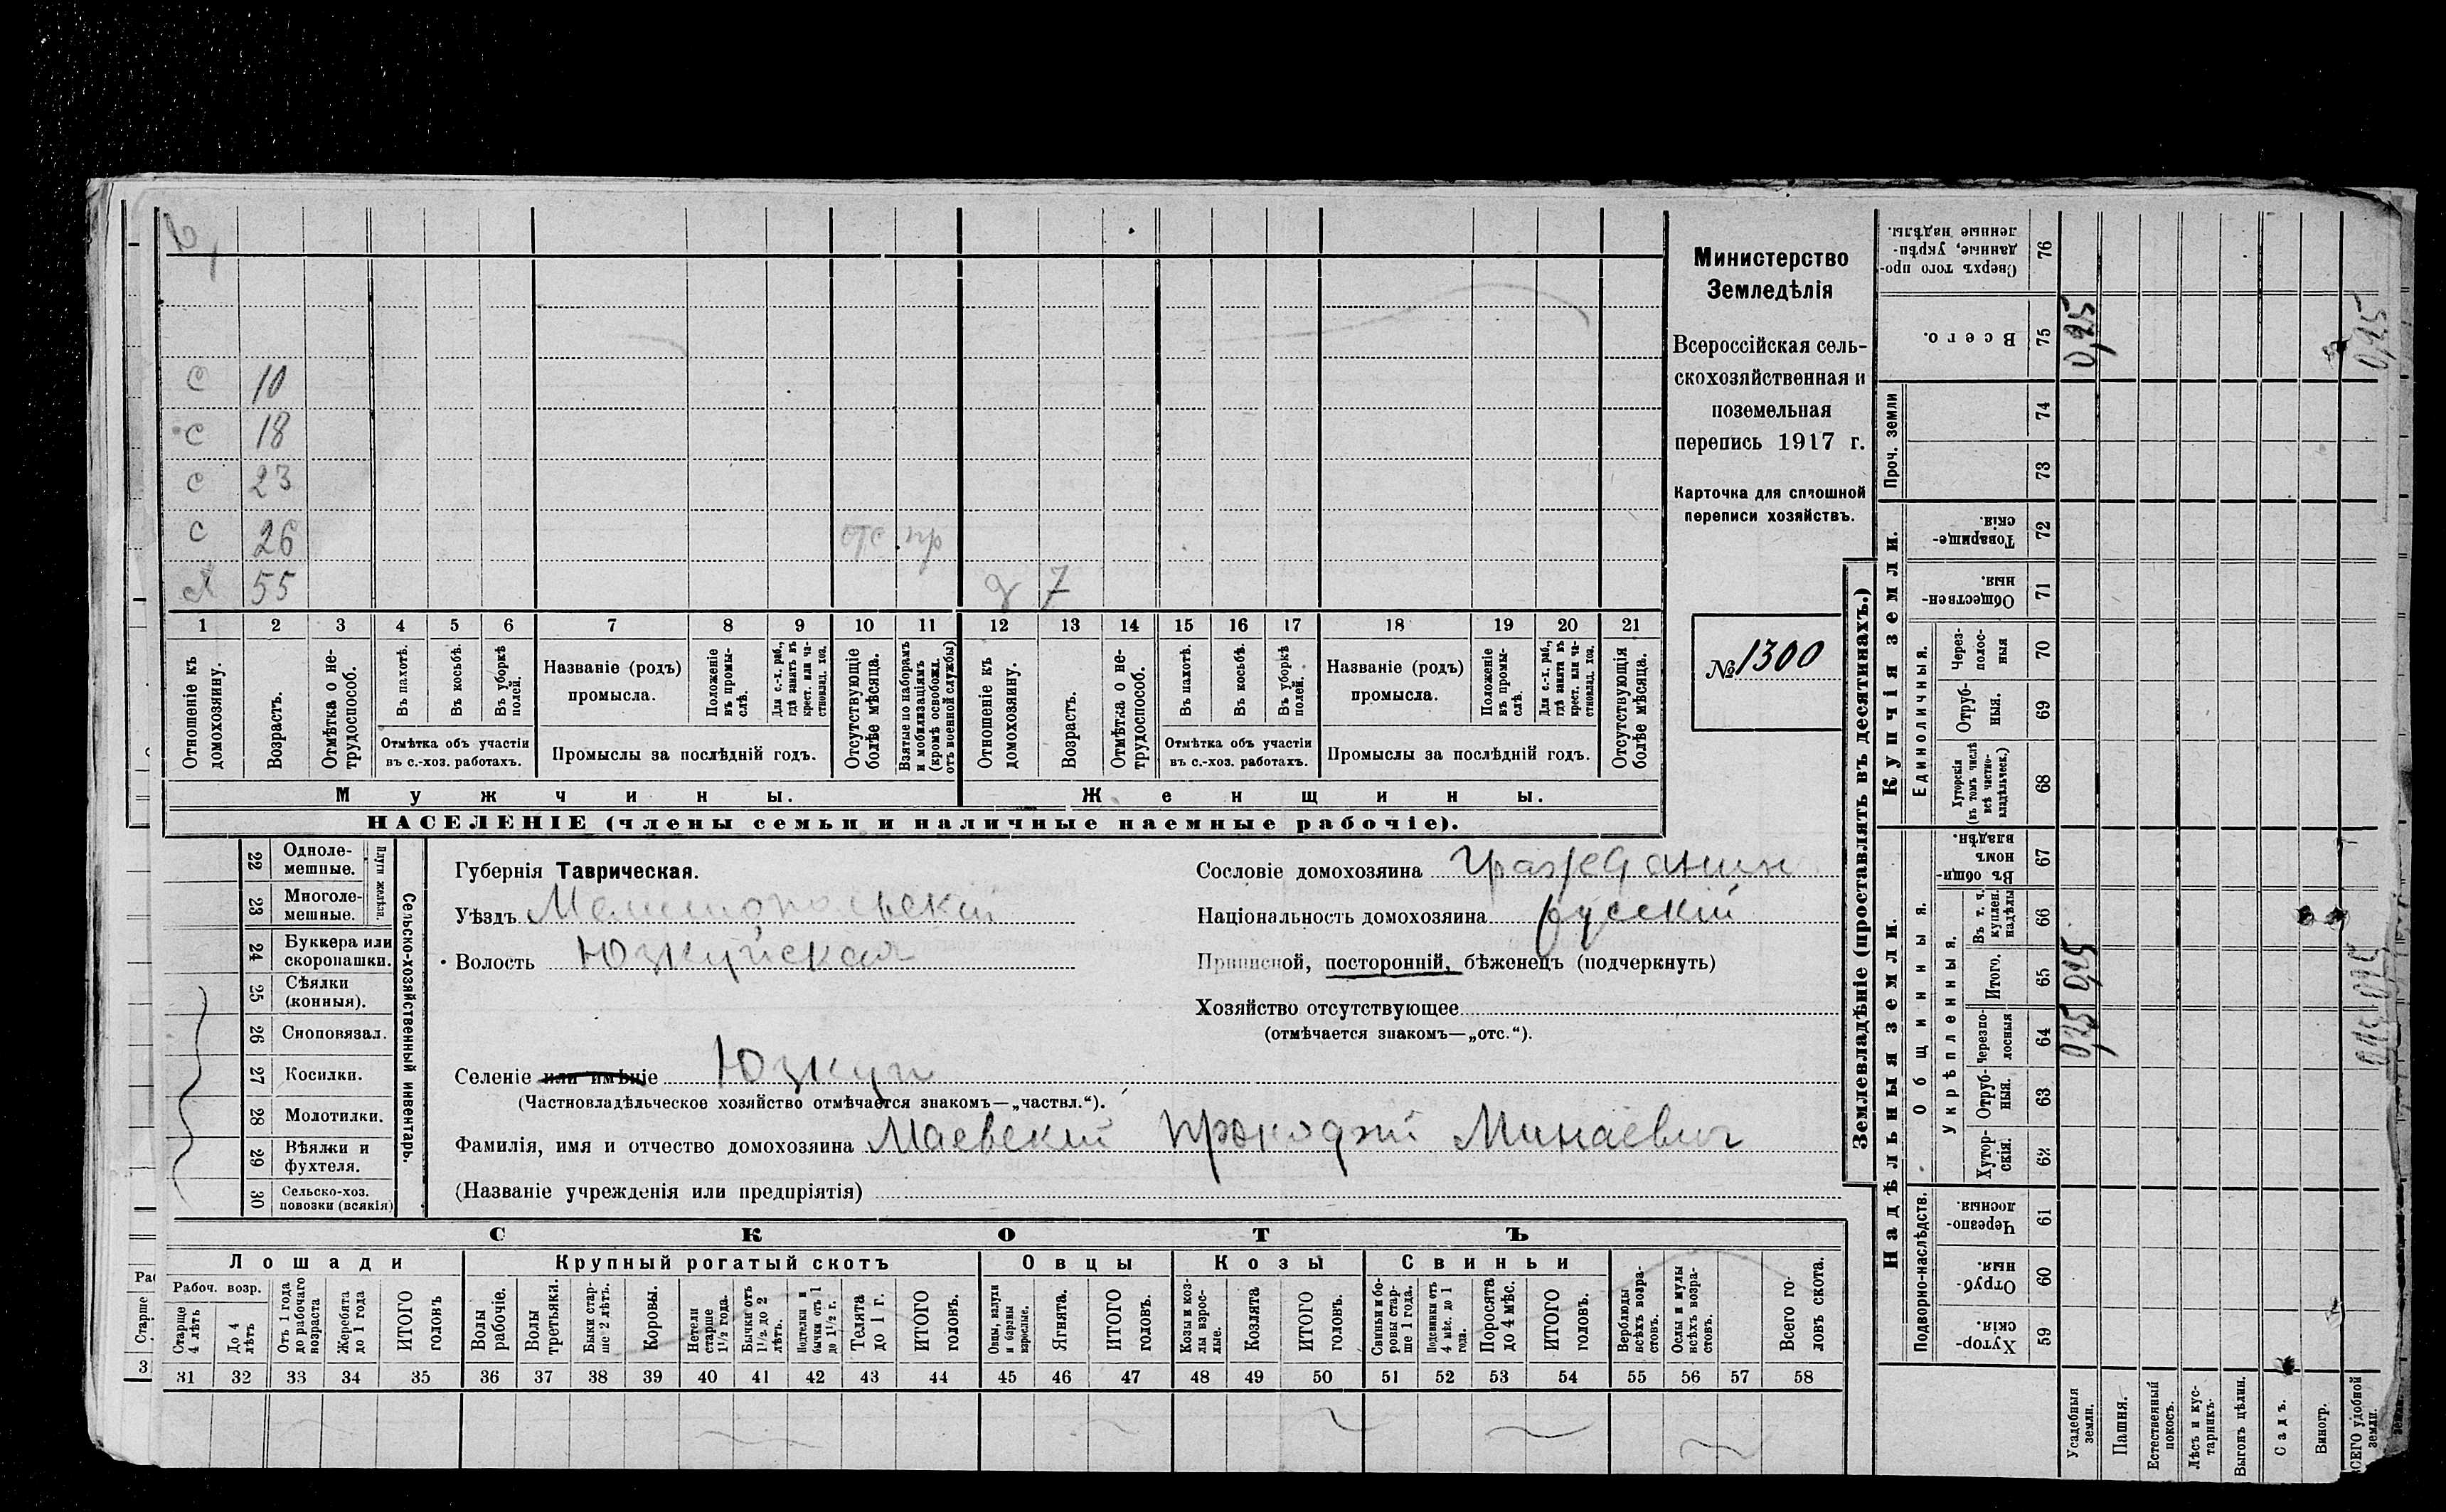 С 10
С 18
С 23
С 26 отс. пр
Х 55 д 7
1 2 3 4 5 6 7 8 9 10 11 12 13 14 15 16 17 18 19 20 21
Отношеніе къ домохозяину.
Возрастъ.
Отмѣтка о нетрудоспособ.
Въ пахотѣ.
Въ косьбѣ.
Въ уборкѣ полей.
Отмѣтка объ участіи
въ с.-хоз. работахъ.
Названіе (родъ)
промысла.
Положеніе въ промыслѣ.
Для с.-х. раб., гдѣ занятъ въ крест. или частновлад. хоз.
Промыслы за послѣдній годъ.
Отсутствующіе болѣе мѣсяца.
Взятые по наборамъ и мобилизаціямъ (кромѣ освобожд. отъ военной службы)
Отношеніе къ домохозяину.
Возрастъ.
Отмѣтка о нетрудоспособ.
Въ пахотѣ.
Въ косьбѣ.
Въ уборкѣ полей.
Отмѣтка объ участіи
въ с.-хоз. работахъ.
Названіе (родъ)
промысла.
Положеніе въ промыслѣ.
Для с.-х. раб., гдѣ занята въ крест. или частновлад. хоз.
Промыслы за послѣдній годъ.
Отсутствующія болѣе мѣсяца.
Мужчины. Женщины.
НАСЕЛЕНІЕ (члены семьи и наличные наемные рабочіе).
Министерство
Земледѣлія
Всероссійская сель-
скохозяйственная и
поземельная
перепись 1917 г.
Карточка для сплошной
переписи хозяйствъ.
№ 1300
Сельско-хозяйственный инвентарь.
Плуги желѣзн.
22 Одноле-
мешные.
23 Многоле-
мешные.
24 Буккера или
скоропашки.
25 Сѣялки
(конныя).
26 Сноповязал.
27 Косилки.
28 Молотилки.
29 Вѣялки и
фухтеля.
30 Сельско-хоз.
повозки (всякія)
Губернія Таврическая.
Уѣздъ Мелитопольскій
Волость Юзкуйская
Селеніе или имѣніе Юзкуи
(Частновладѣльческое хозяйство отмѣчается знакомъ—„частвл.“).
Фамилія, имя и отчество домохозяина Маевскій Прокофій Минаевич
(Названіе учрежденія или предпріятія)
Сословіе домохозяина гражданин
Національность домохозяина русскій
Приписной, посторонній, бѣженецъ (подчеркнуть)
Хозяйство отсутствующее
(отмѣчается знакомъ—„отс.“).
СКОТЪ
Лошади Крупный рогатый скотъ Овцы Козы Свиньи
Рабоч. возр.
Старше 4 лѣтъ
До 4 лѣтъ
Отъ 1 года до рабочаго возраста
Жеребята до 1 года
ИТОГО головъ
Волы рабочіе.
Волы третьяки.
Быки старше 2 лѣтъ.
Коровы.
Нетели старше 1½ года.
Бычки отъ 1½ до 2 лѣтъ.
Подтелки и бычки отъ 1 до 1½ г.
Телята до 1 г.
ИТОГО головъ.
Овцы, валухи и бараны взрослые.
Ягнята.
ИТОГО головъ.
Козы и козлы взрослые.
Козлята
ИТОГО головъ.
Свиньи и боровы старше 1 года.
Подсвинки отъ 4 мѣс. до 1 года.
Поросята до 4 мѣс.
ИТОГО головъ.
Верблюды всѣхъ возрастовъ.
Ослы и мулы всѣхъ возрастовъ.
Всего головъ скота.
31 32 33 34 35 36 37 38 39 40 41 42 43 44 45 46 47 48 49 50 51 52 53 54 55 56 57 58
Землевладѣніе (проставлять въ десятинахъ.)
Купчія земли.
Надѣльныя земли.
Сверхъ того проданные, укрѣпленные надѣлы. 76
Всего. 75 0,25 0,25
Проч. земли 74
73
Товарищескія. 72
Общественныя. 71
Единоличныя.
Черезполосныя 70
Отрубныя. 69
Хуторскія (въ томъ числѣ всѣ частновладѣльческ.) 68
Общинныя.
Въ общинномъ владѣн. 67
Укрѣпленныя.
Въ т. ч. куплен. надѣлы 66
Итого. 65 0,25 0,25
Черезполосныя 64 0,25 0,25
Отрубныя. 63
Хуторскія. 62
Подворно-наслѣдств.
Черезполосныя. 61
Отрубныя. 60
Хуторскія. 59
Усадебныя земли.
Пашня.
Естественный покосъ.
Лѣсъ и кустарникъ.
Выгонъ цѣлин.
Садъ.
Виногр.
ВСЕГО удобной земли.